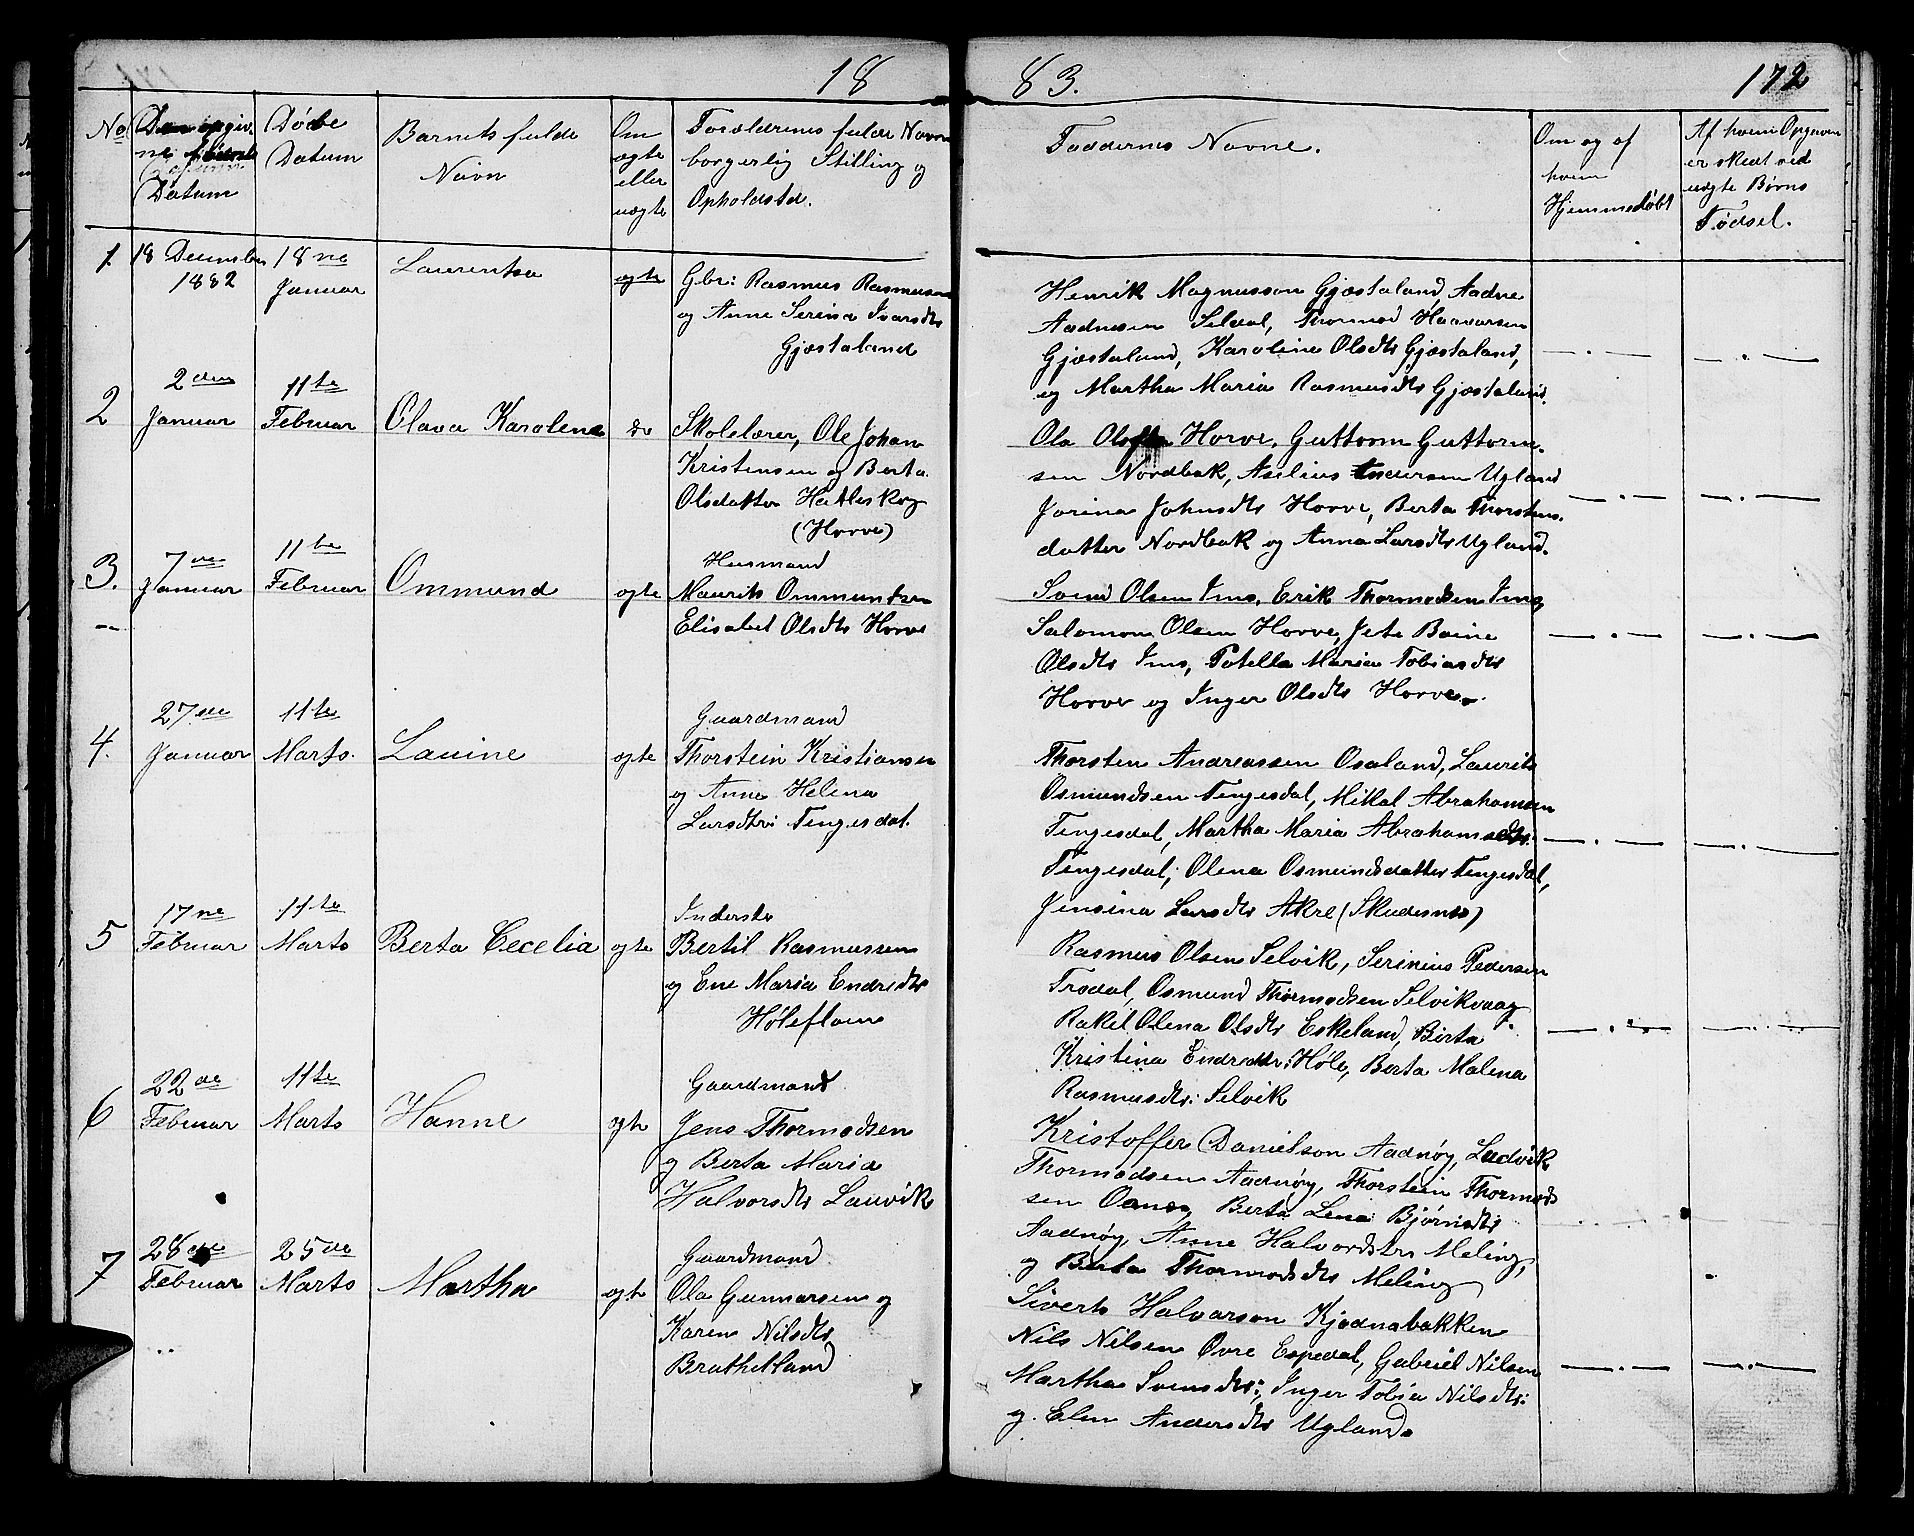 18 83. 172
No
Den opgiv.
ne
Datum
Døbe
Datum
Barnets fulde
Navn
Om
ægte
eller
uægte
Forældrenes fulde Navn
borgerlig Stilling og
Opholdsted.
Faddernes Navne.
Om og af
hvem
Hjemmedøbt
Af hvem Opgaven
er skedt ved
uægte Børns
Fødsel.
1. 18 December
1882
18ne
Januar
Laurentse
ægte
Gbr: Rasmus Rasmusen
og Anne Serine Ivarsdtr
Gjæstaland
Henrik Magnusson Gjæstaland, Aadne
Aadnesen Selvol, Thormod Haavarsen
Gjæstaland, Karoline Olsdtr Gjæstaland,
og Martha Maria Rasmusdtr Gjæstaland.
2
2den
Januar
11te
Februar
Olava Karolene
do
Skolelærer, Ole Johan
Kristensen og Berta
Olsdatter Hatleskog
(Horve)
Ola Horve, Guttorm Guttorm-
sen Nordbak, Aselius Andersen Ugland
Jorina Johnsdtr Horve, Berta Thorstens-
datter Nordbak og Anna Larsdtr Ugland.
3.
7de
Januar
11te
Februar
Ommund
ægte
Husmand
Maurits Ommundsen
Elisabet Olsdtr Horve
Svend Olsen Ims, Erik Thormodsen Ims,
Salomon Olsen Horve, Jete Boine
Olsdtr Ims, Potella Maria Tobiasdtr
Horve og Inger Olsdtr Horve.
4.
27de
Januar
11te
Marts.
Lauine
ægte
Gaardmand
Thorstein Kristiansen
og Anne Helena
Larsdtr: Tengesdal.
Thorsten Andreassen Osaland, Laurits
Osmundsen Tengesdal, Mikal Abrahamsen
Tengesdal, Martha Maria Abrahamsdtr:
Tengesdal, Olena Osmundsdatter Tengesdal,
Jensina Larsdtr Akre (Skudesnes)
5
17ne
Februar
11te
Marts
Berta Cecelia
ægte
Inderste
Bertil Rasmussen
og Ene Maria Endredtr
Høleflaen
Rasmus Olsen Selvik, Serinius Pedersen
Trodal, Osmund Thormodsen Selvikvaag
Rakel Olena Olsdtr Eskeland, Berta
Kristina Endredtr: Høle, Berta Malena
Rasmusdtr: Selvik
6
22de
Februar
11te
Marts
Hanne
ægte
Gaardmand
Jens Thormodsen
og Berta Maria
Halvorsdtr Lauvik
Kristoffer Danielson Aadnøy, Ludvik
Thormodsen Aadnøy, Thorstein Thormod-
sen Berta Lena Bjørnsdtr
Aadnøy, Anne Halvordstr Meling,
og Berta Thormodsdtr Meling
7
28de
Februar
25de
Marts
Martha
ægte
Gaardmand
Ola Gunnarsen og
Karen Nilsdtr
Brathetland
Siverts Halvarson Kjødnabakken
Nils Nilsen Øvre Espedal, Gabriel Nilsen
Martha Svensdtr:, Inger Tobia Nilsdtr:
og Elen Andersdtr Ugland.